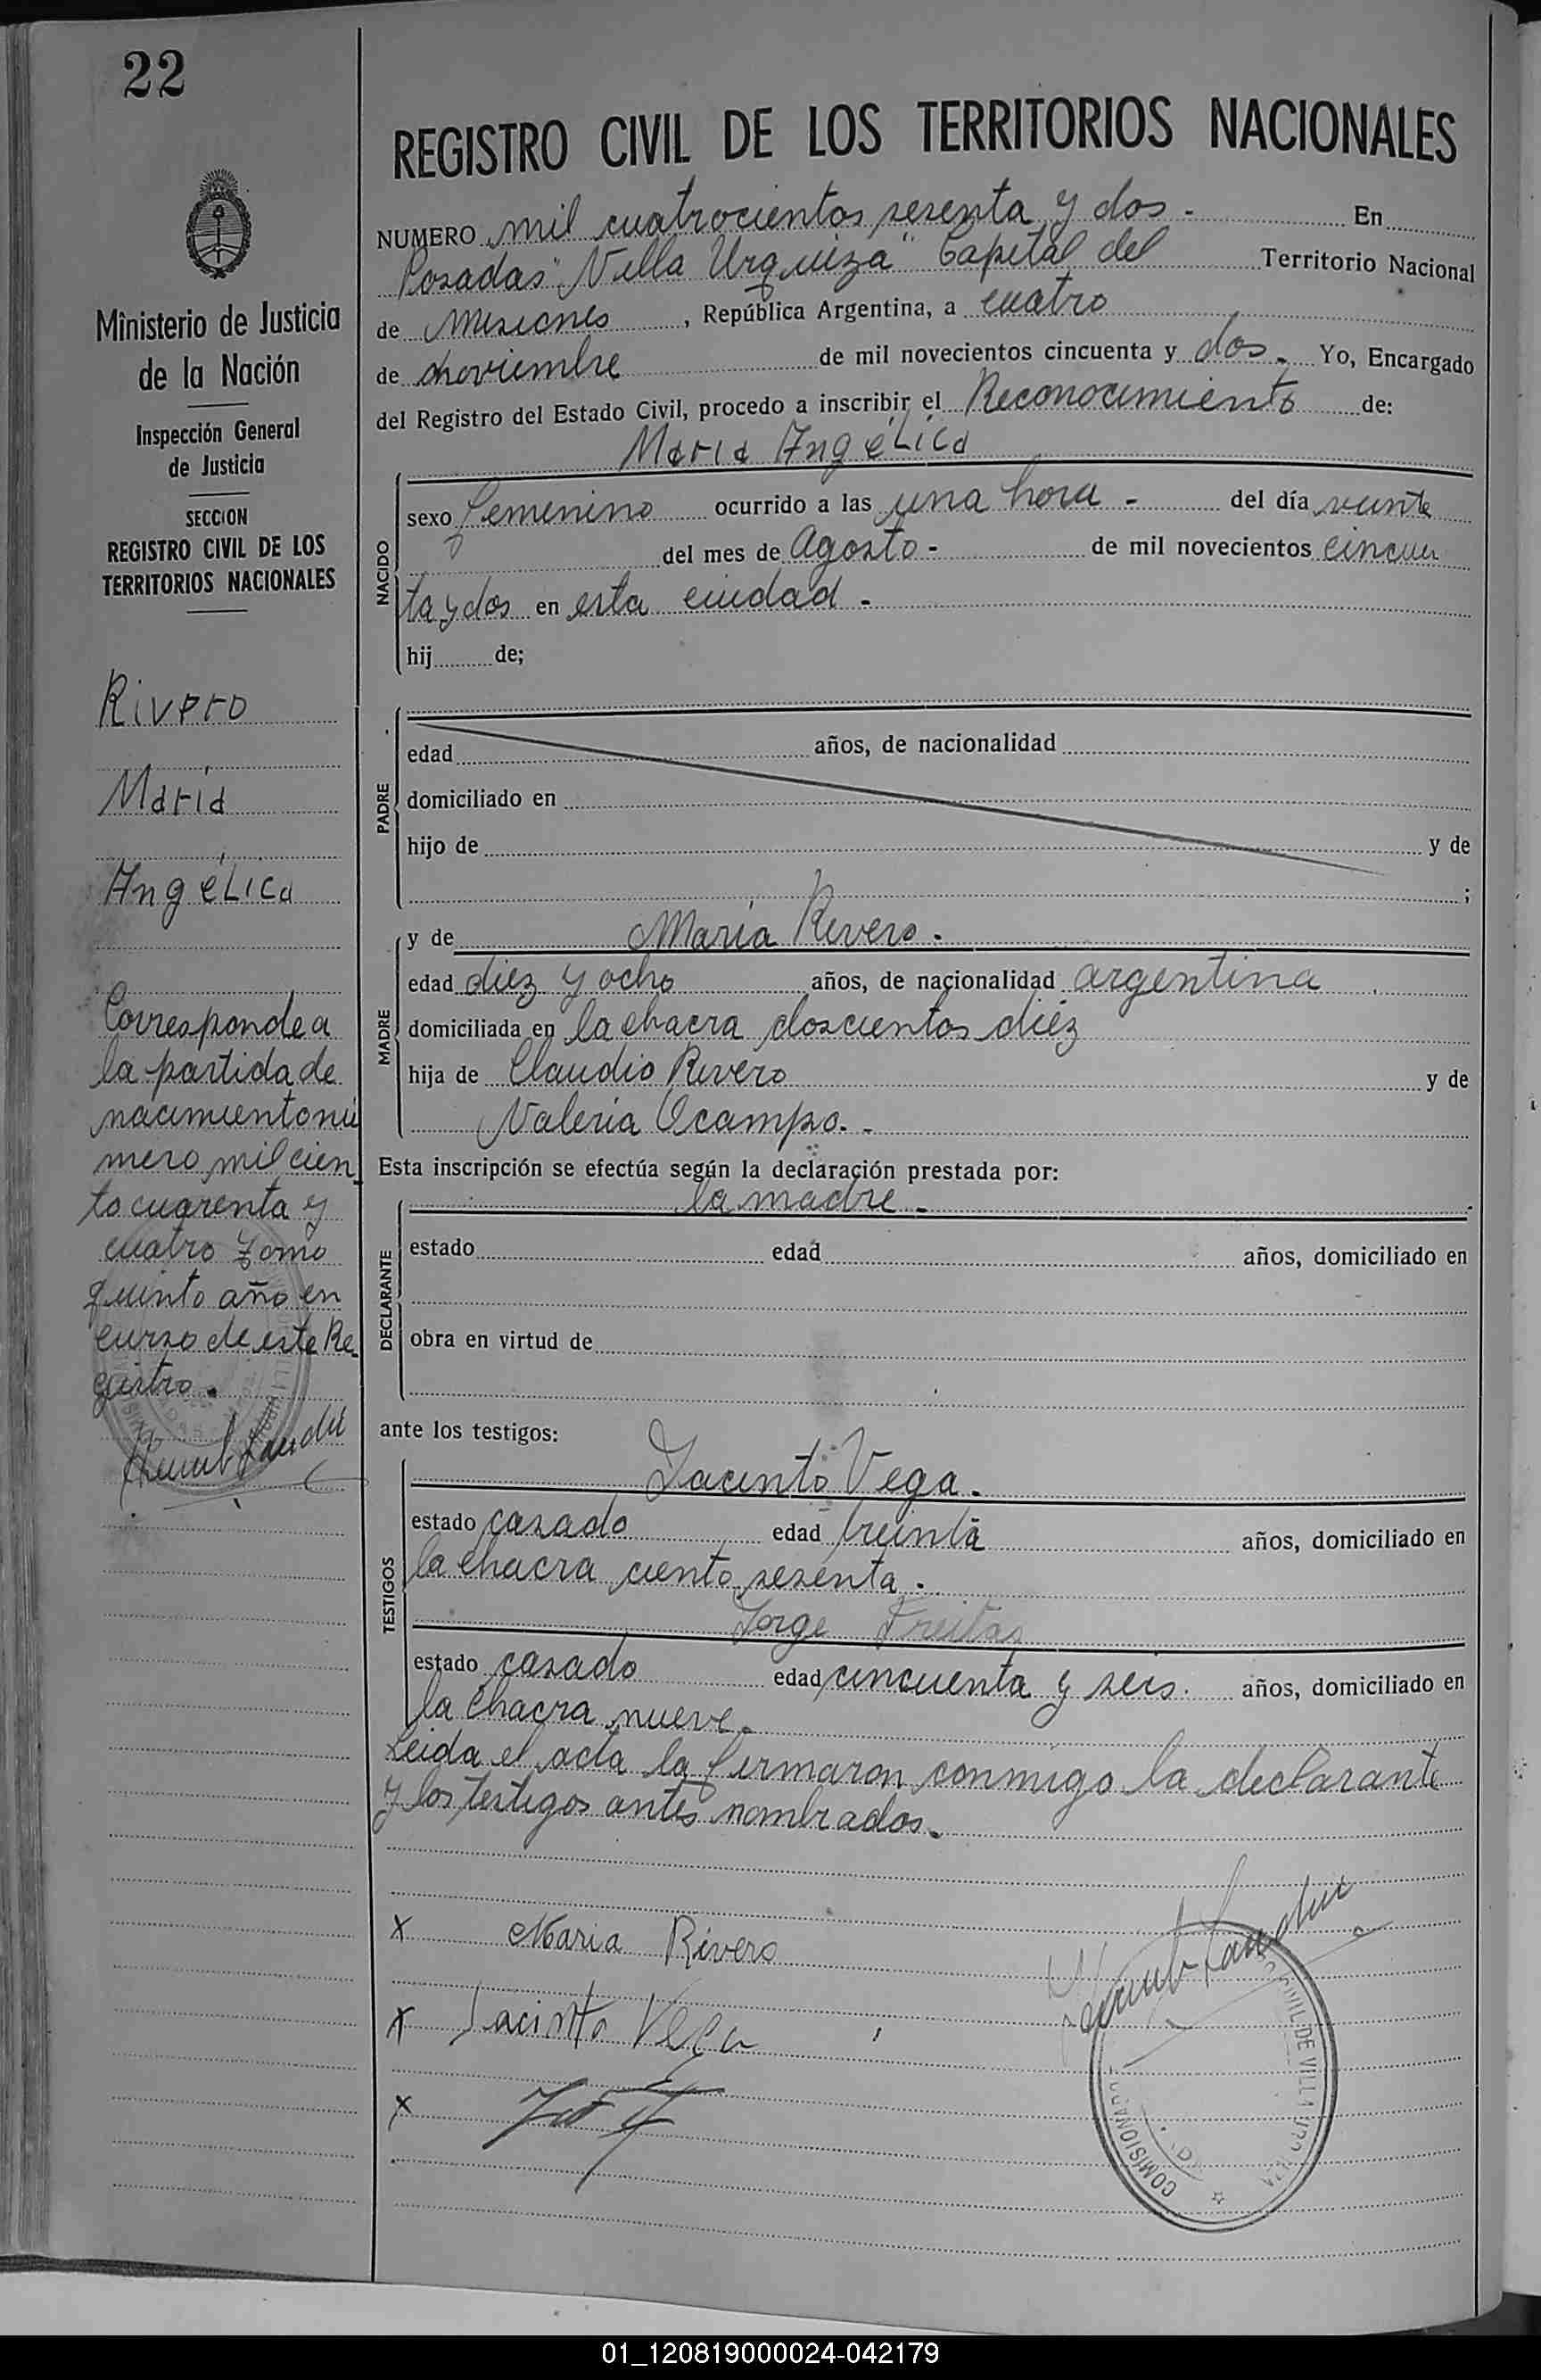 22
REGISTRO CIVIL DE LOS TERRITORIOS NACIONALES
Ministerio de Justicia
de la Nación
Inspección General
de Justicia
SECCION
REGISTRO CIVIL DE LOS
TERRITORIOS NACIONALES
Rivero
María
Angélica
Corresponde a
la partida de
nacimiento nú
mero mil cien
to cuarenta y
cuatro tomo
quinto año en
curso de este Re
gistro.
NUMERO mil cuatrocientos sesenta y dos - En
Posadas "Villa Urquiza" Capital del Territorio Nacional
de Misiones, República Argentina, a cuatro
de noviembre de mil novecientos cincuenta y dos. Yo, Encargado
del Registro del Estado Civil, procedo a inscribir el Reconocimiento de:
María Angélica
NACIDO
sexo femenino ocurrido a las una hora - del día veinte
del mes de Agosto - de mil novecientos cincuen
ta y dos en esta ciudad -
hij de;
PADRE
edad años, de nacionalidad
domiciliado en
hijo de y de
;
MADRE
y de María Rivero.
edad diez y ocho años, de nacionalidad argentina
domiciliada en la chacra doscientos diez
hija de Claudio Rivero y de
Valeria Ocampo. -
Esta inscripción se efectúa según la declaración prestada por:
la madre -
DECLARANTE
estado edad años, domiciliado en
obra en virtud de
ante los testigos:
TESTIGOS
Jacinto Vega.
estado casado edad treinta años, domiciliado en
la chacra ciento sesenta.
Jorge Freitas
estado casado edad cincuenta y seis. años, domiciliado en
la chacra nueve.
Leida el acta la firmaron conmigo la declarante
y los testigos antes nombrados.
x Maria Rivero
x Jacinto Vega
x
COMISIONADO CIVIL DE VILLA URQUIZA
01_120819000024-042179